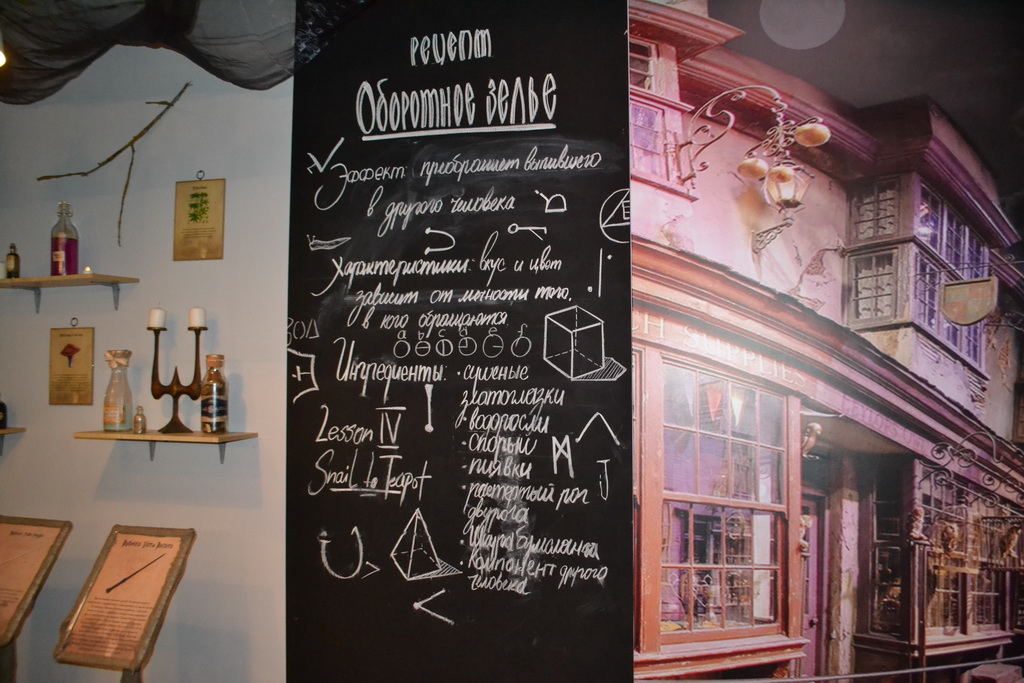 рецепт
Оборотное зелье
Эффект: преобращает выпившего
в другого человека
Характеристики: вкус и цвет
зависит от личности того,
в кого обращаются
Ингредиенты: • сушеные
златоглазки
• водоросли
• спорыш
• пиявки
• растертый рог
двурога
• шкура бумсланга
• компонент другого
человека
Lesson IV
Snail to Teapot
CH SUPPLIES